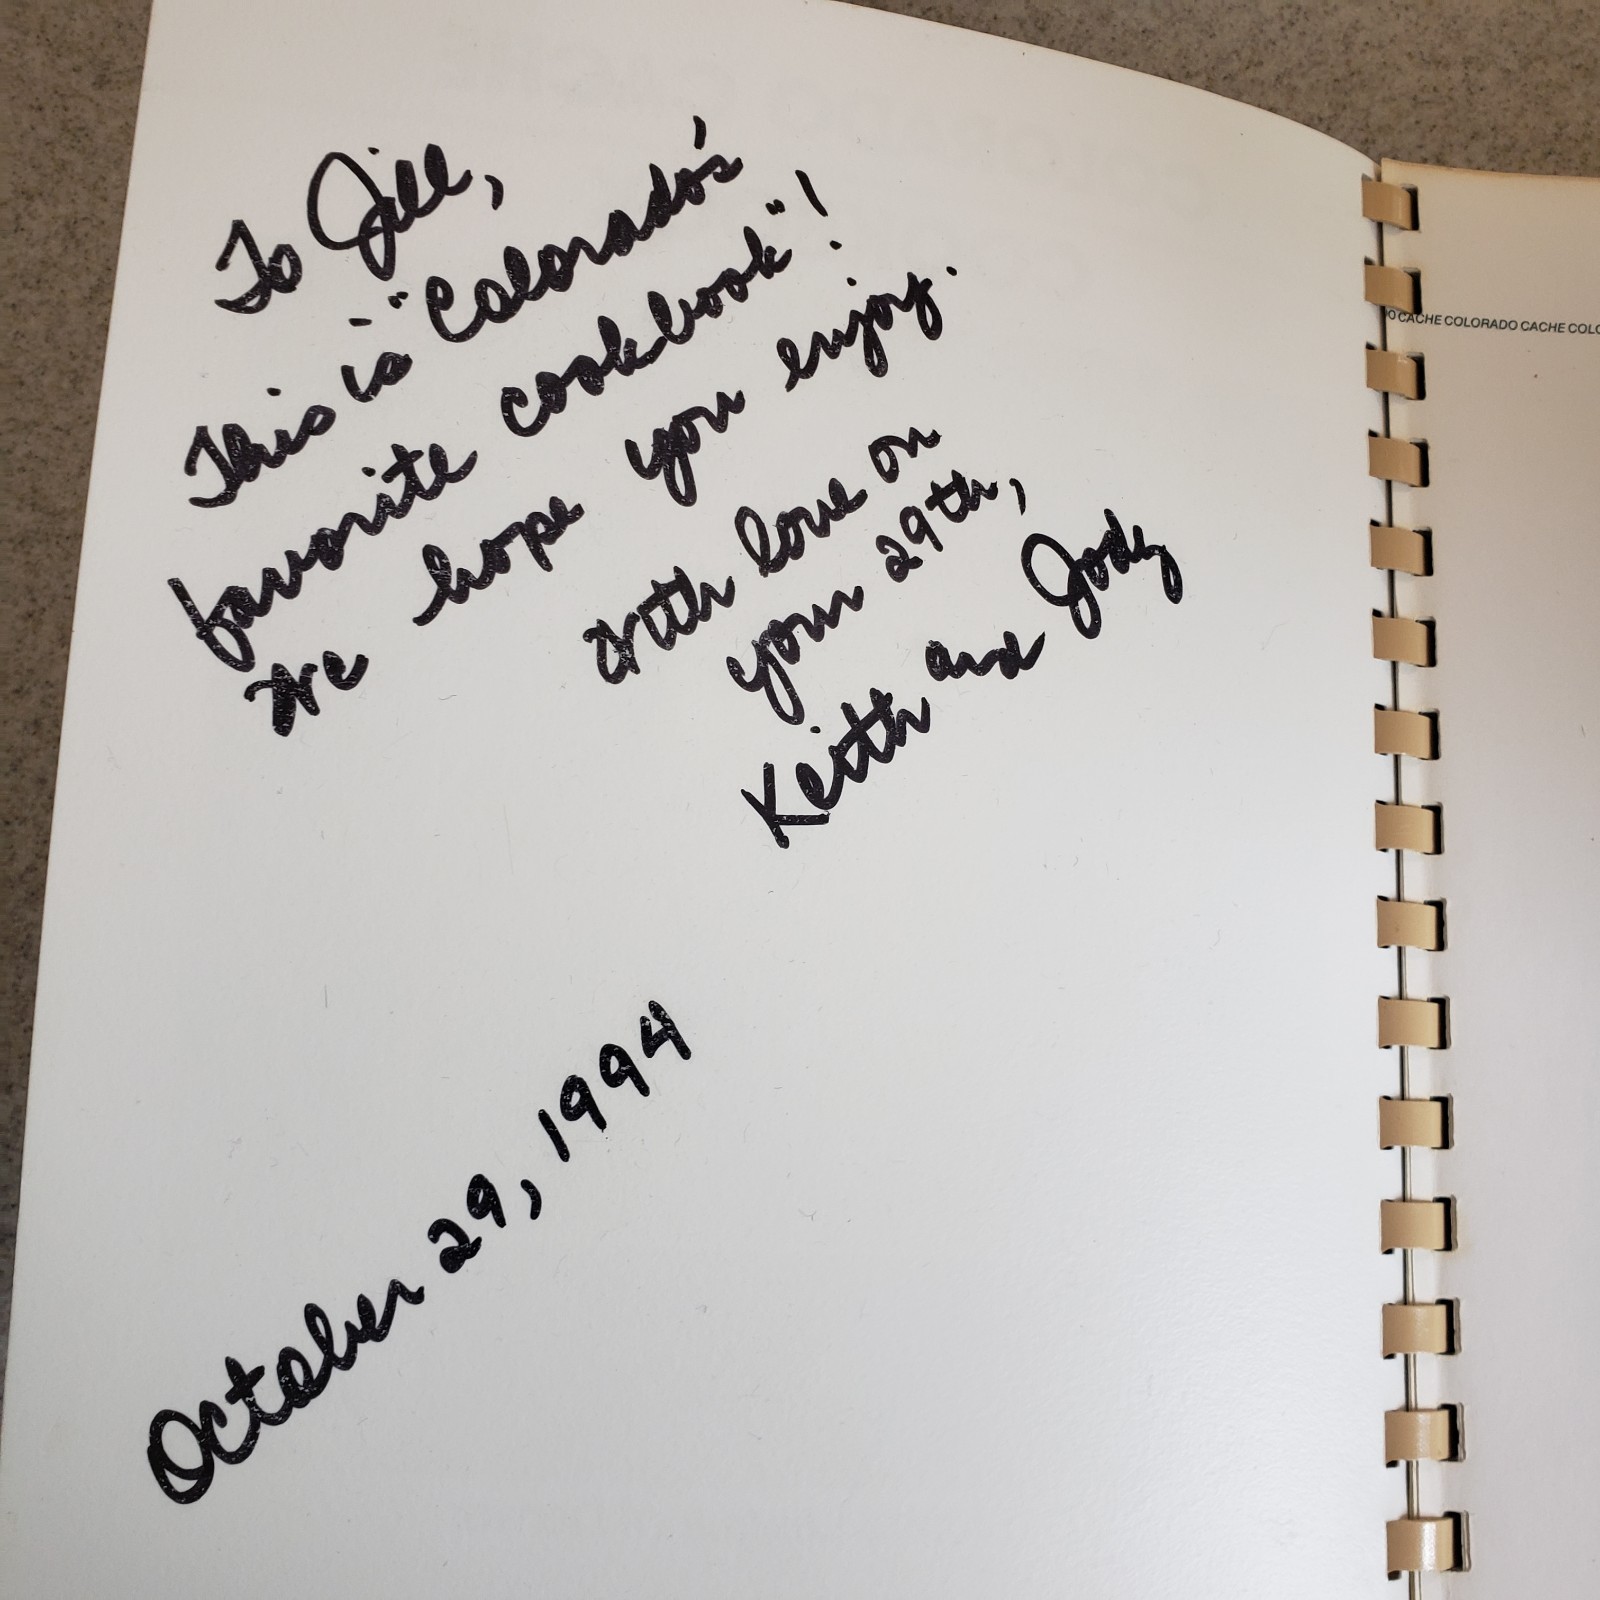 To Jill,
This is "Colorado's
favorite cookbook"!
We hope you enjoy.
With love on
your 29th,
Keith and Jody
October 29, 1994
O CACHE COLORADO CACHE COLO